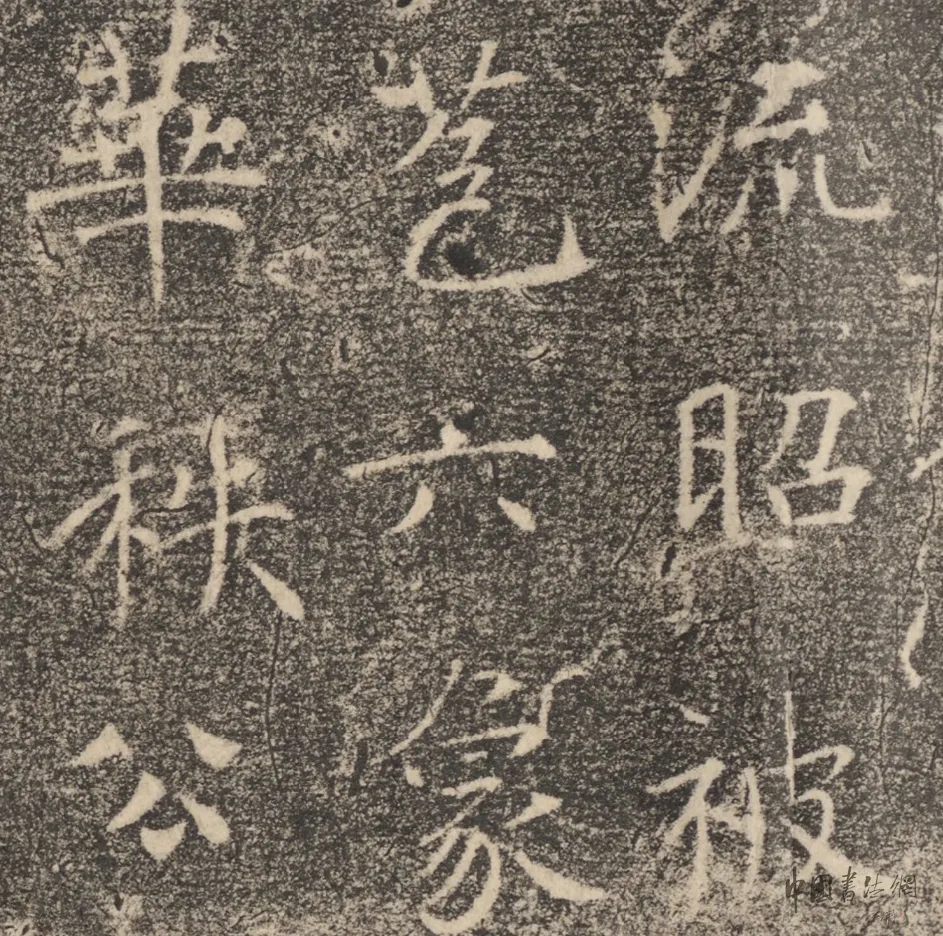 流昭被
苞六象
華秩公
中國書法網